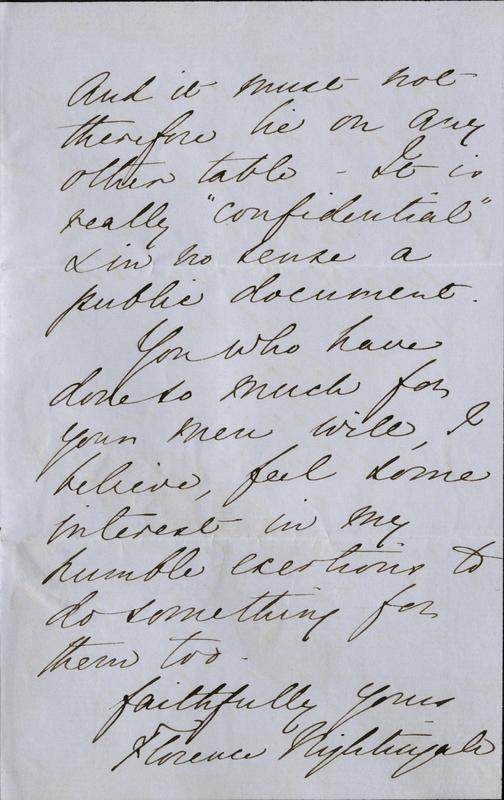 And it must not
therefore lie on any
other table - It is
really "confidential"
& in no sense a
public document.
You who have
done so much for
your men will, I
believe, feel some
interest in my
humble exertions to
do something for
them too -
faithfully yours
Florence Nightingale